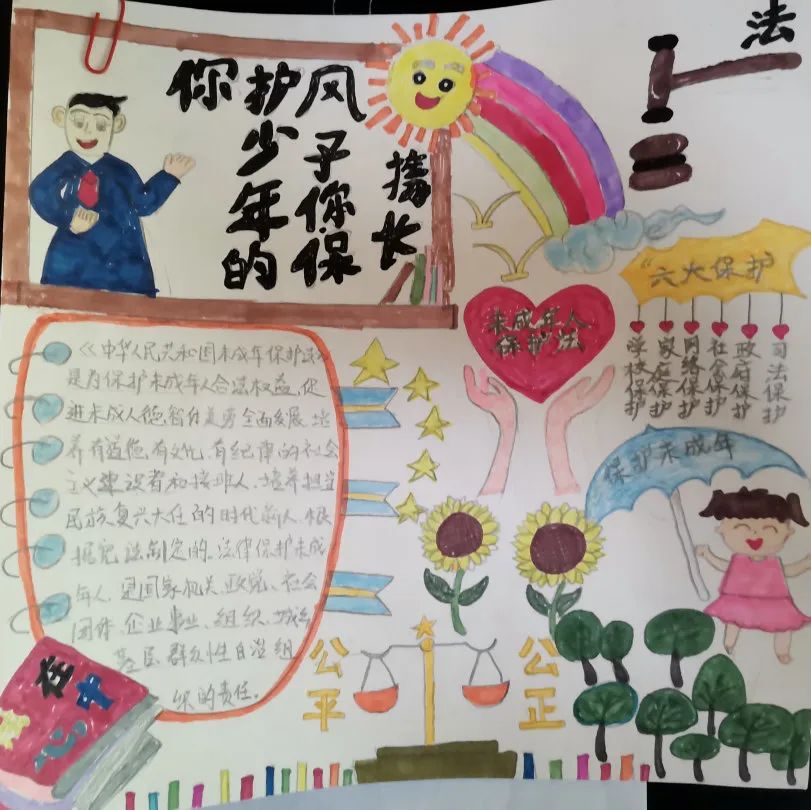 法
你护少年的
风子你保
撸长
"六大保护"
学校保护
家庭保护
网络保护
社会保护
政府保护
司法保护
未成年人
保护法
保护未成年
《中华人民共和国未成年保护法》
是为保护未成年人合法权益,促
进未成人德智体美劳全面发展,培
养有道德,有文化,有纪律的社会
主义建设者和接班人,培养担当
民族复兴大任的时代新人,根
据宪法制定的,法律保护未成
年人,是国家机关、政党、社会
团体、企业事业、组织、城乡
基层群众性自治组
织的责任。
公平
公正
在
中
心